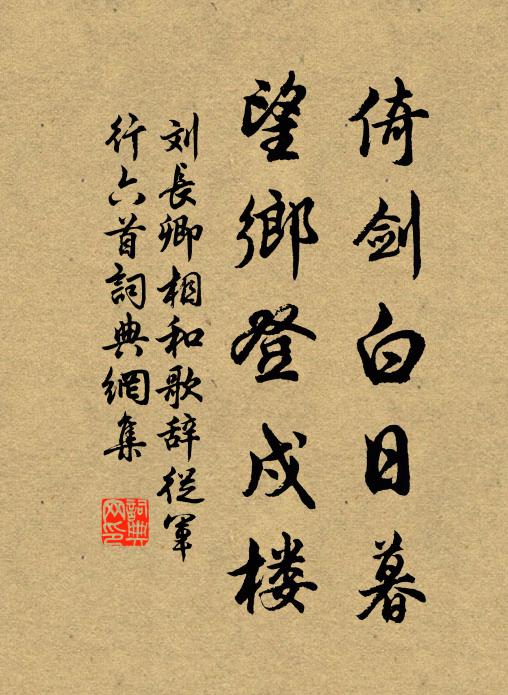 倚剑白日暮
望鄉登戍楼
刘長卿相和歌辞從軍
行六首詞典網集
詞典
网印